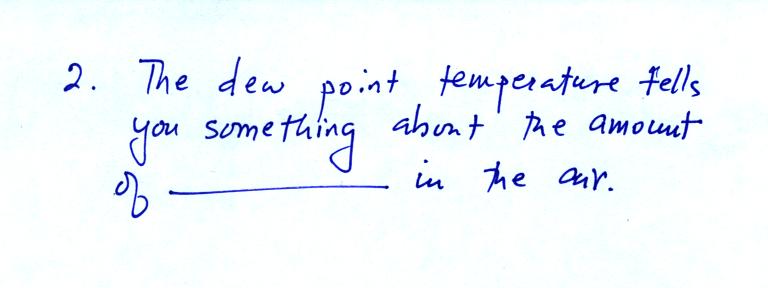 2. The dew point temperature tells
you something about the amount
of __________ in the air.